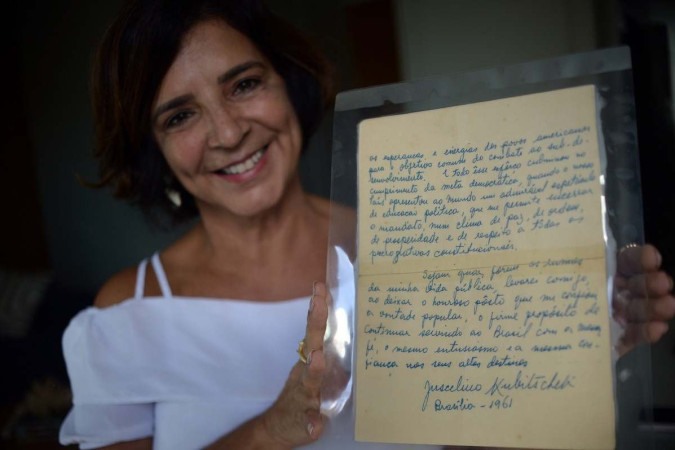 as esperanças e energias dos povos americanos
para o objetivo comum do combate ao sub-de-
senvolvimento. E todo esse esforço culminou no
cumprimento da meta democrática, quando o nosso
País apresentou ao mundo um admirável espetáculo
de educação política, que me permite encerrar
o mandato, num clima de paz, de ordem,
de prosperidade e de respeito a todas as
prerrogativas constitucionais.
Sejam quais forem os rumos
da minha vida pública, levarei comigo,
ao deixar o honroso pôsto que me conferiu
a vontade popular, o firme propósito de
continuar servindo ao Brasil com a mesma
fé, o mesmo entusiasmo e a mesma con-
fiança nos seus altos destinos
Juscelino Kubitschek
Brasília - 1961